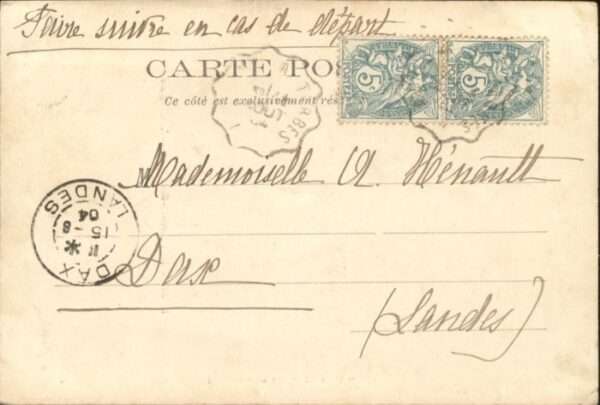 Faire suivre en cas de départ
CARTE POS
Ce côté est exclusivement rés
5
5
Mademoiselle A. Hénault
Dax
(Landes)
DAX
LANDES
15 - 8
04